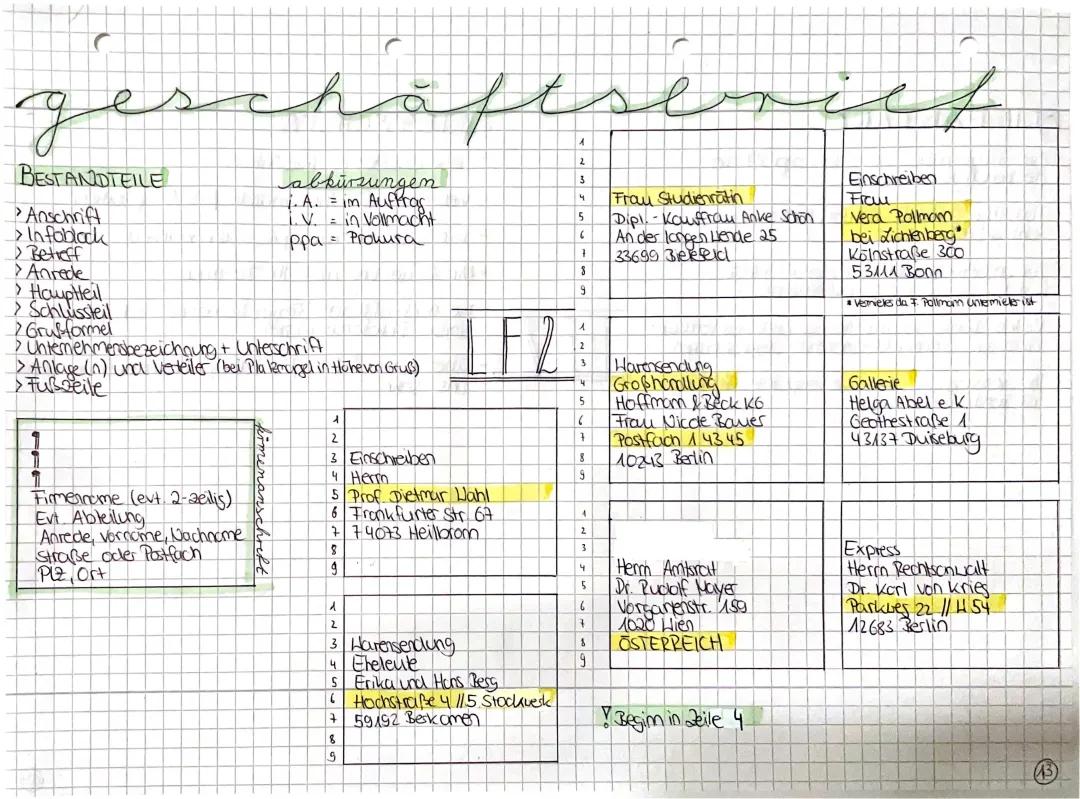 geschäftsbrief
BESTANDTEILE
> Anschrift
> Infoblock
> Betreff
> Anrede
> Hauptteil
> Schlussteil
> Grußformel
> Unternehmensbezeichnung + Unterschrift
> Anlage(n) und Verteiler (bei Platzmangel in Höhe von Gruß)
> Fußzeile
abkürzungen
i.A. = im Auftrag
i.V. = in Vollmacht
ppa = Prokura
LF2
firmenanschrift
Firmenname (evt. 2-zeilig)
Evt. Abteilung
Anrede, Vorname, Nachname
Straße oder Postfach
PLZ, Ort
1
2
3 Einschreiben
4 Herrn
5 Prof. Dietmar Wahl
6 Frankfurter Str. 67
7 74073 Heilbronn
8
9
1
2
3 Warensendung
4 Eheleute
5 Erika und Hans Berg
6 Hochstraße 4 // 5. Stockwerk
7 59192 Berkamen
8
9
1
2
3
4 Frau Studienrätin
5 Dipl.-Kauffrau Anke Schön
6 An der langen Wende 25
7 33699 Bielefeld
8
9
Einschreiben
Frau
Vera Pollmann
bei Lichtenberg*
Kölnstraße 300
53111 Bonn
* Vermieter da F. Pollmann Untermieter ist
1
2
3 Warensendung
4 Großhandlung
5 Hoffmann & Beck KG
6 Frau Nicole Bauer
7 Postfach 1 43 45
8 10243 Berlin
9
Gallerie
Helga Abel e.K.
Geothestraße 1
43137 Duiseburg
1
2
3
4 Herrn Amtsrat
5 Dr. Rudolf Mayer
6 Vorgartenstr. 159
7 1020 Wien
8 ÖSTERREICH
9
Express
Herrn Rechtsanwalt
Dr. Karl von Kries
Parkweg 22 // W 54
12683 Berlin
! Beginn in Zeile 4
13